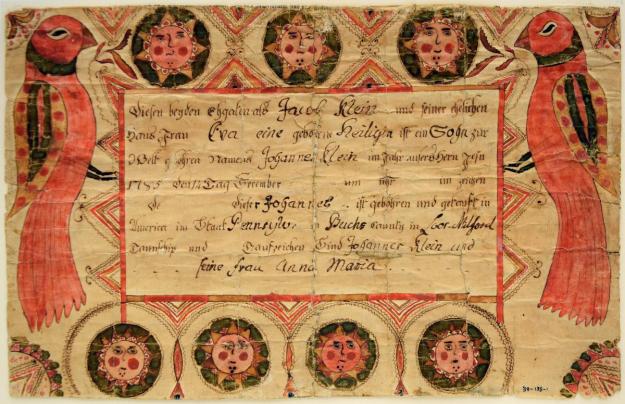 Diesen beyden Ehgaten als Jacob Klein und seiner ehelichen
Haus Frau Eva eine gebohrne Heiligin ist ein Sohn zur
Welt gebohren Namens Johannes Klein im Jahr unsers Herrn Jesu
1785 den 12 Tag December um uhr im zeigen
De Dieser Johannes ist gebohren und getauft in
America im Staat Pennsylv in Buchs caunty in Loer Milford
Taunship und Taufzeichen Sind Johannes Klein und
seine frau Anna Maria